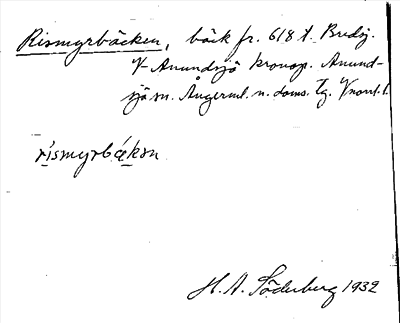 Rismyrbäcken, bäck fr. 618 t. Bredsj.
V Anundsjö kronop. Anund-
sjö sn. Ångerml. n. doms. Tg.
rismyrbäkən
H. A. Söderberg 1932